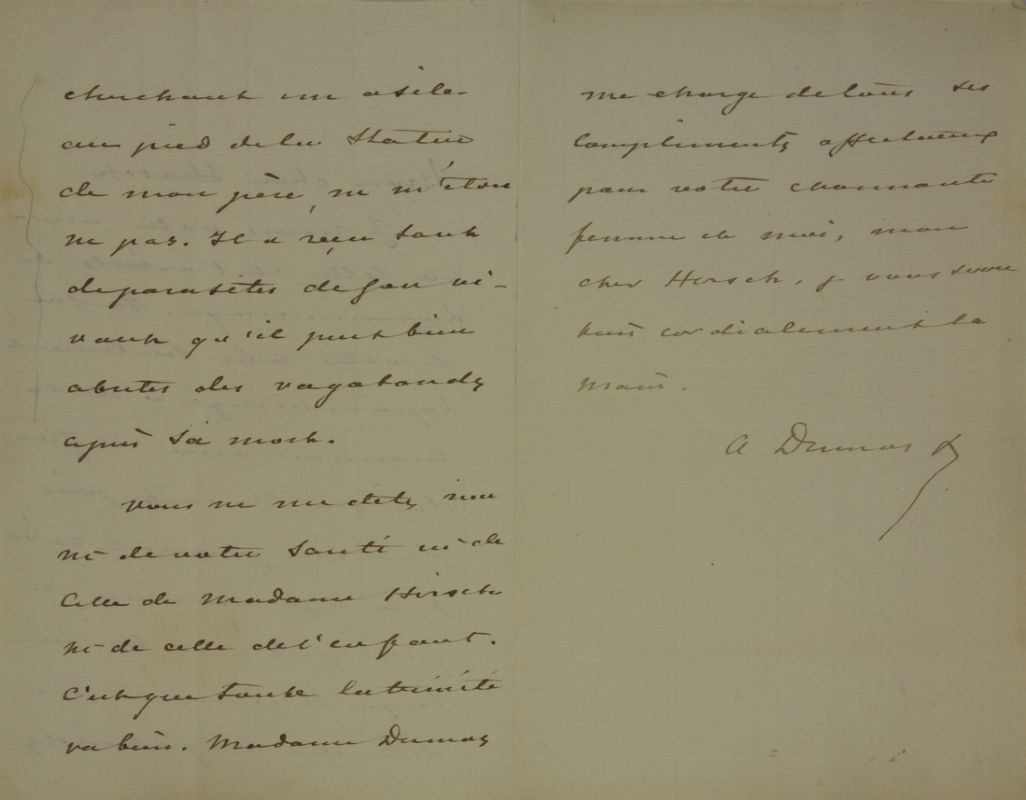 cherchant un asile
au pied de la Statue
de mon père, ne m'éton
ne pas. Il a reçu tant
de parasites de son vi-
vant qu'il peut bien
abriter des vagabonds
après sa mort.
Vous ne me dites rien
ni de votre santé ni de
celle de Madame Hirsch
ni de celle de l'enfant.
C'est que toute la trinité
va bien. Madame Dumas
me charge de tous ses
compliments affectueux
pour votre charmante
femme et moi, mon
cher Hirsch, je vous serre
bien cordialement la
main.
A Dumas f